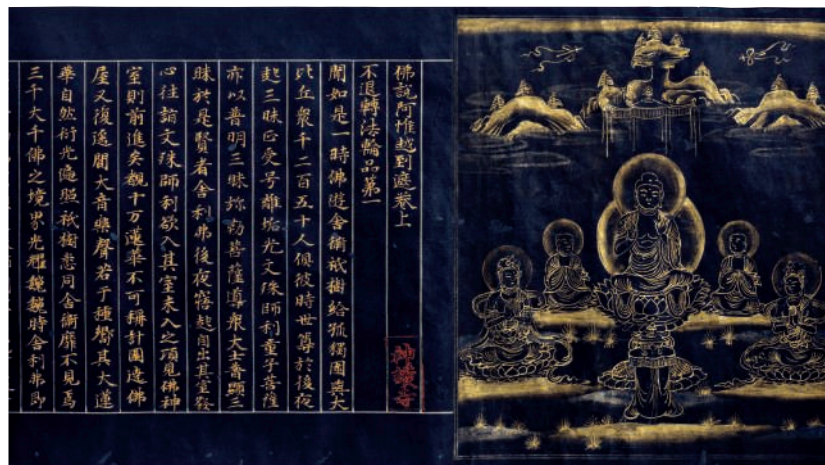 佛說阿惟越致遮卷上
不退轉法輪品第一
神護寺
聞如是一時佛遊舍衛祇樹給孤獨園與大
比丘衆千二百五十人俱彼時世尊於後夜
起三昧正受号離垢光文殊師利童子菩薩
亦以普明三昧弥勒菩薩導衆大士普顯三
昧於是賢者舍利弗後夜寤起自出其室發
心往詣文殊師利欲入其室未入之頃見佛神
室則前進矣覩十万蓮華不可稱計圍遶佛
屋又復遙聞大音樂聲若干種響其大蓮
華自然衍光遍照祇樹悉同舍衛靡不見焉
三千大千佛之境界光耀巍巍時舍利弗即